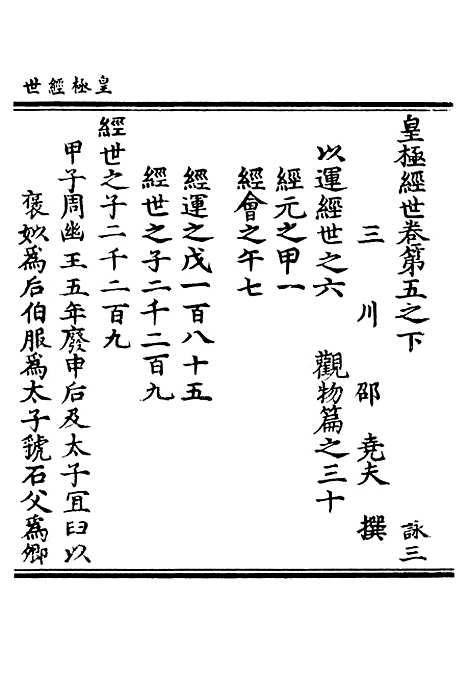 皇極經世
皇極經世卷第五之下　詠三
三川邵堯夫撰
以運經世之六　觀物篇之三十
經元之甲一
經會之午七
經運之戊一百八十五
經世之子二千二百九
經世之子二千二百九
甲子周幽王五年廢申后及太子冝臼以
褒姒為后伯服為太子虢石父為卿